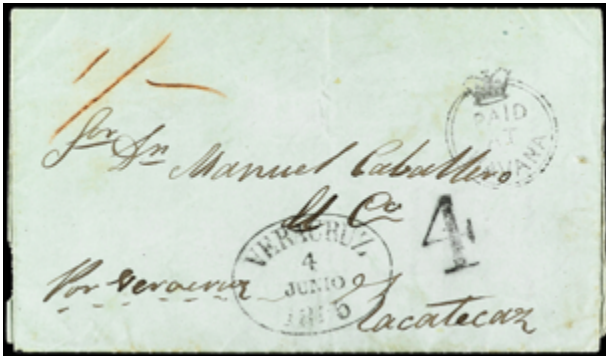 1/-
PAID
AT
HAVANA
Sor Dn Manuel Caballero
y Co
VERACRUZ
4
JUNIO
4
Por Veracruz
Zacatecaz